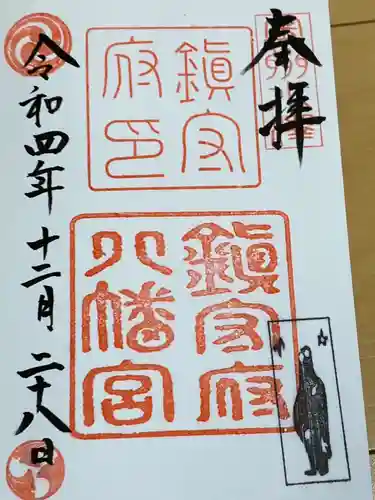 奉拝
鎮守府印
鎮守府
八幡宮
令和四年十二月二十八日